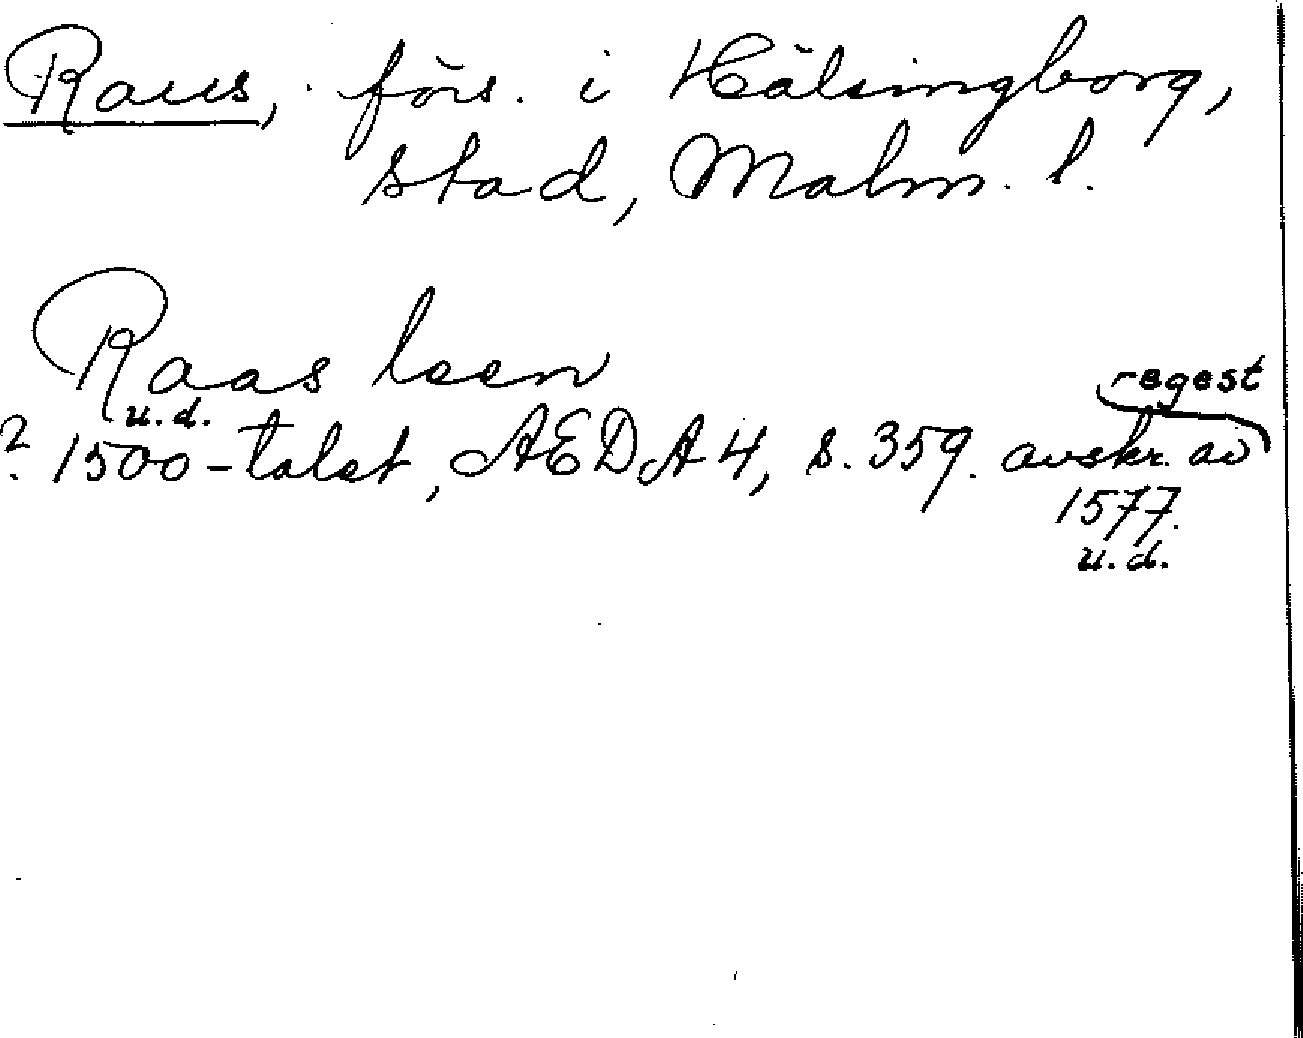 Raus, förs. i Hälsingborg,
stad, Malm. l.
Raas leen
regest
u.d.
? 1500-talet, AEDA 4, s. 359. avskr. av
1577.
u.d.